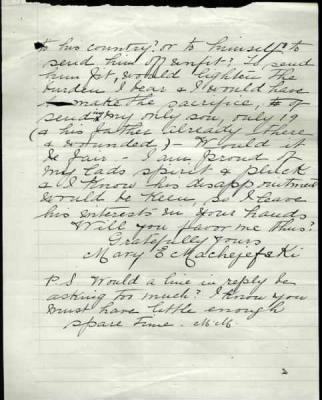 to his country? or to himself? to
send him off unfit? To send
him fit, would lighten the
burden I bear & I would have
make the sacrifice, to of
send my only son, only 19
(& his father already there
& wounded) - Would it
be fair. I am proud of
my lads spirit & pluck
& I know his disappointment
would be keen, so I leave
his interests in your hands
Will you favor me thus?
Gratefully yours
Mary E Machejefski
P.S. Would a line in reply be
asking too much? I know you
must have little enough
spare time. M.M.
2